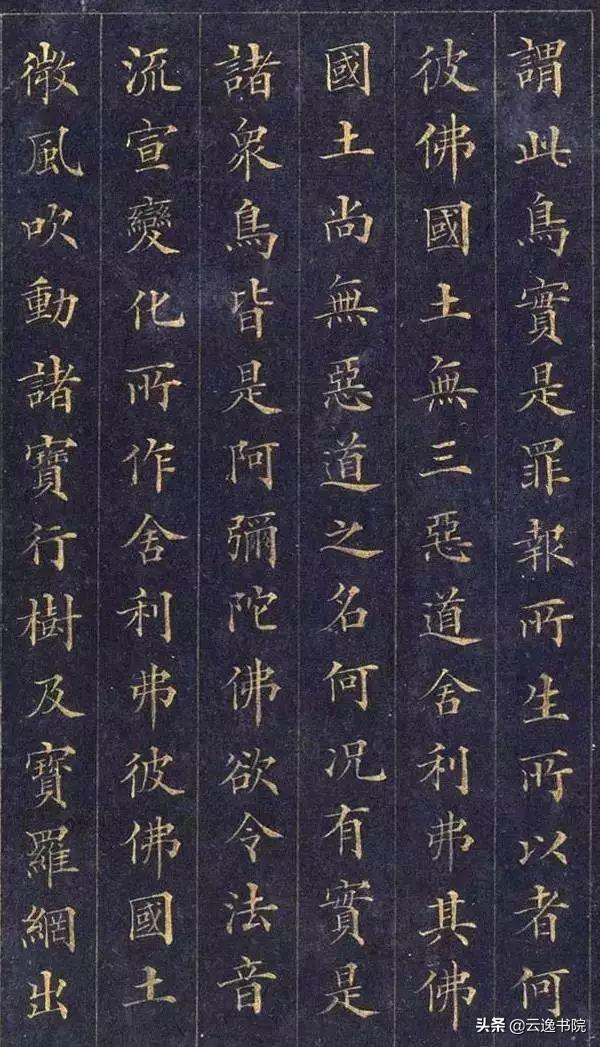 謂此鳥實是罪報所生所以者何
彼佛國土無三惡道舍利弗其佛
國土尚無惡道之名何况有實是
諸眾鳥皆是阿彌陀佛欲令法音
流宣變化所作舍利弗彼佛國土
微風吹動諸寶行樹及寶羅網出
头条 @云逸书院